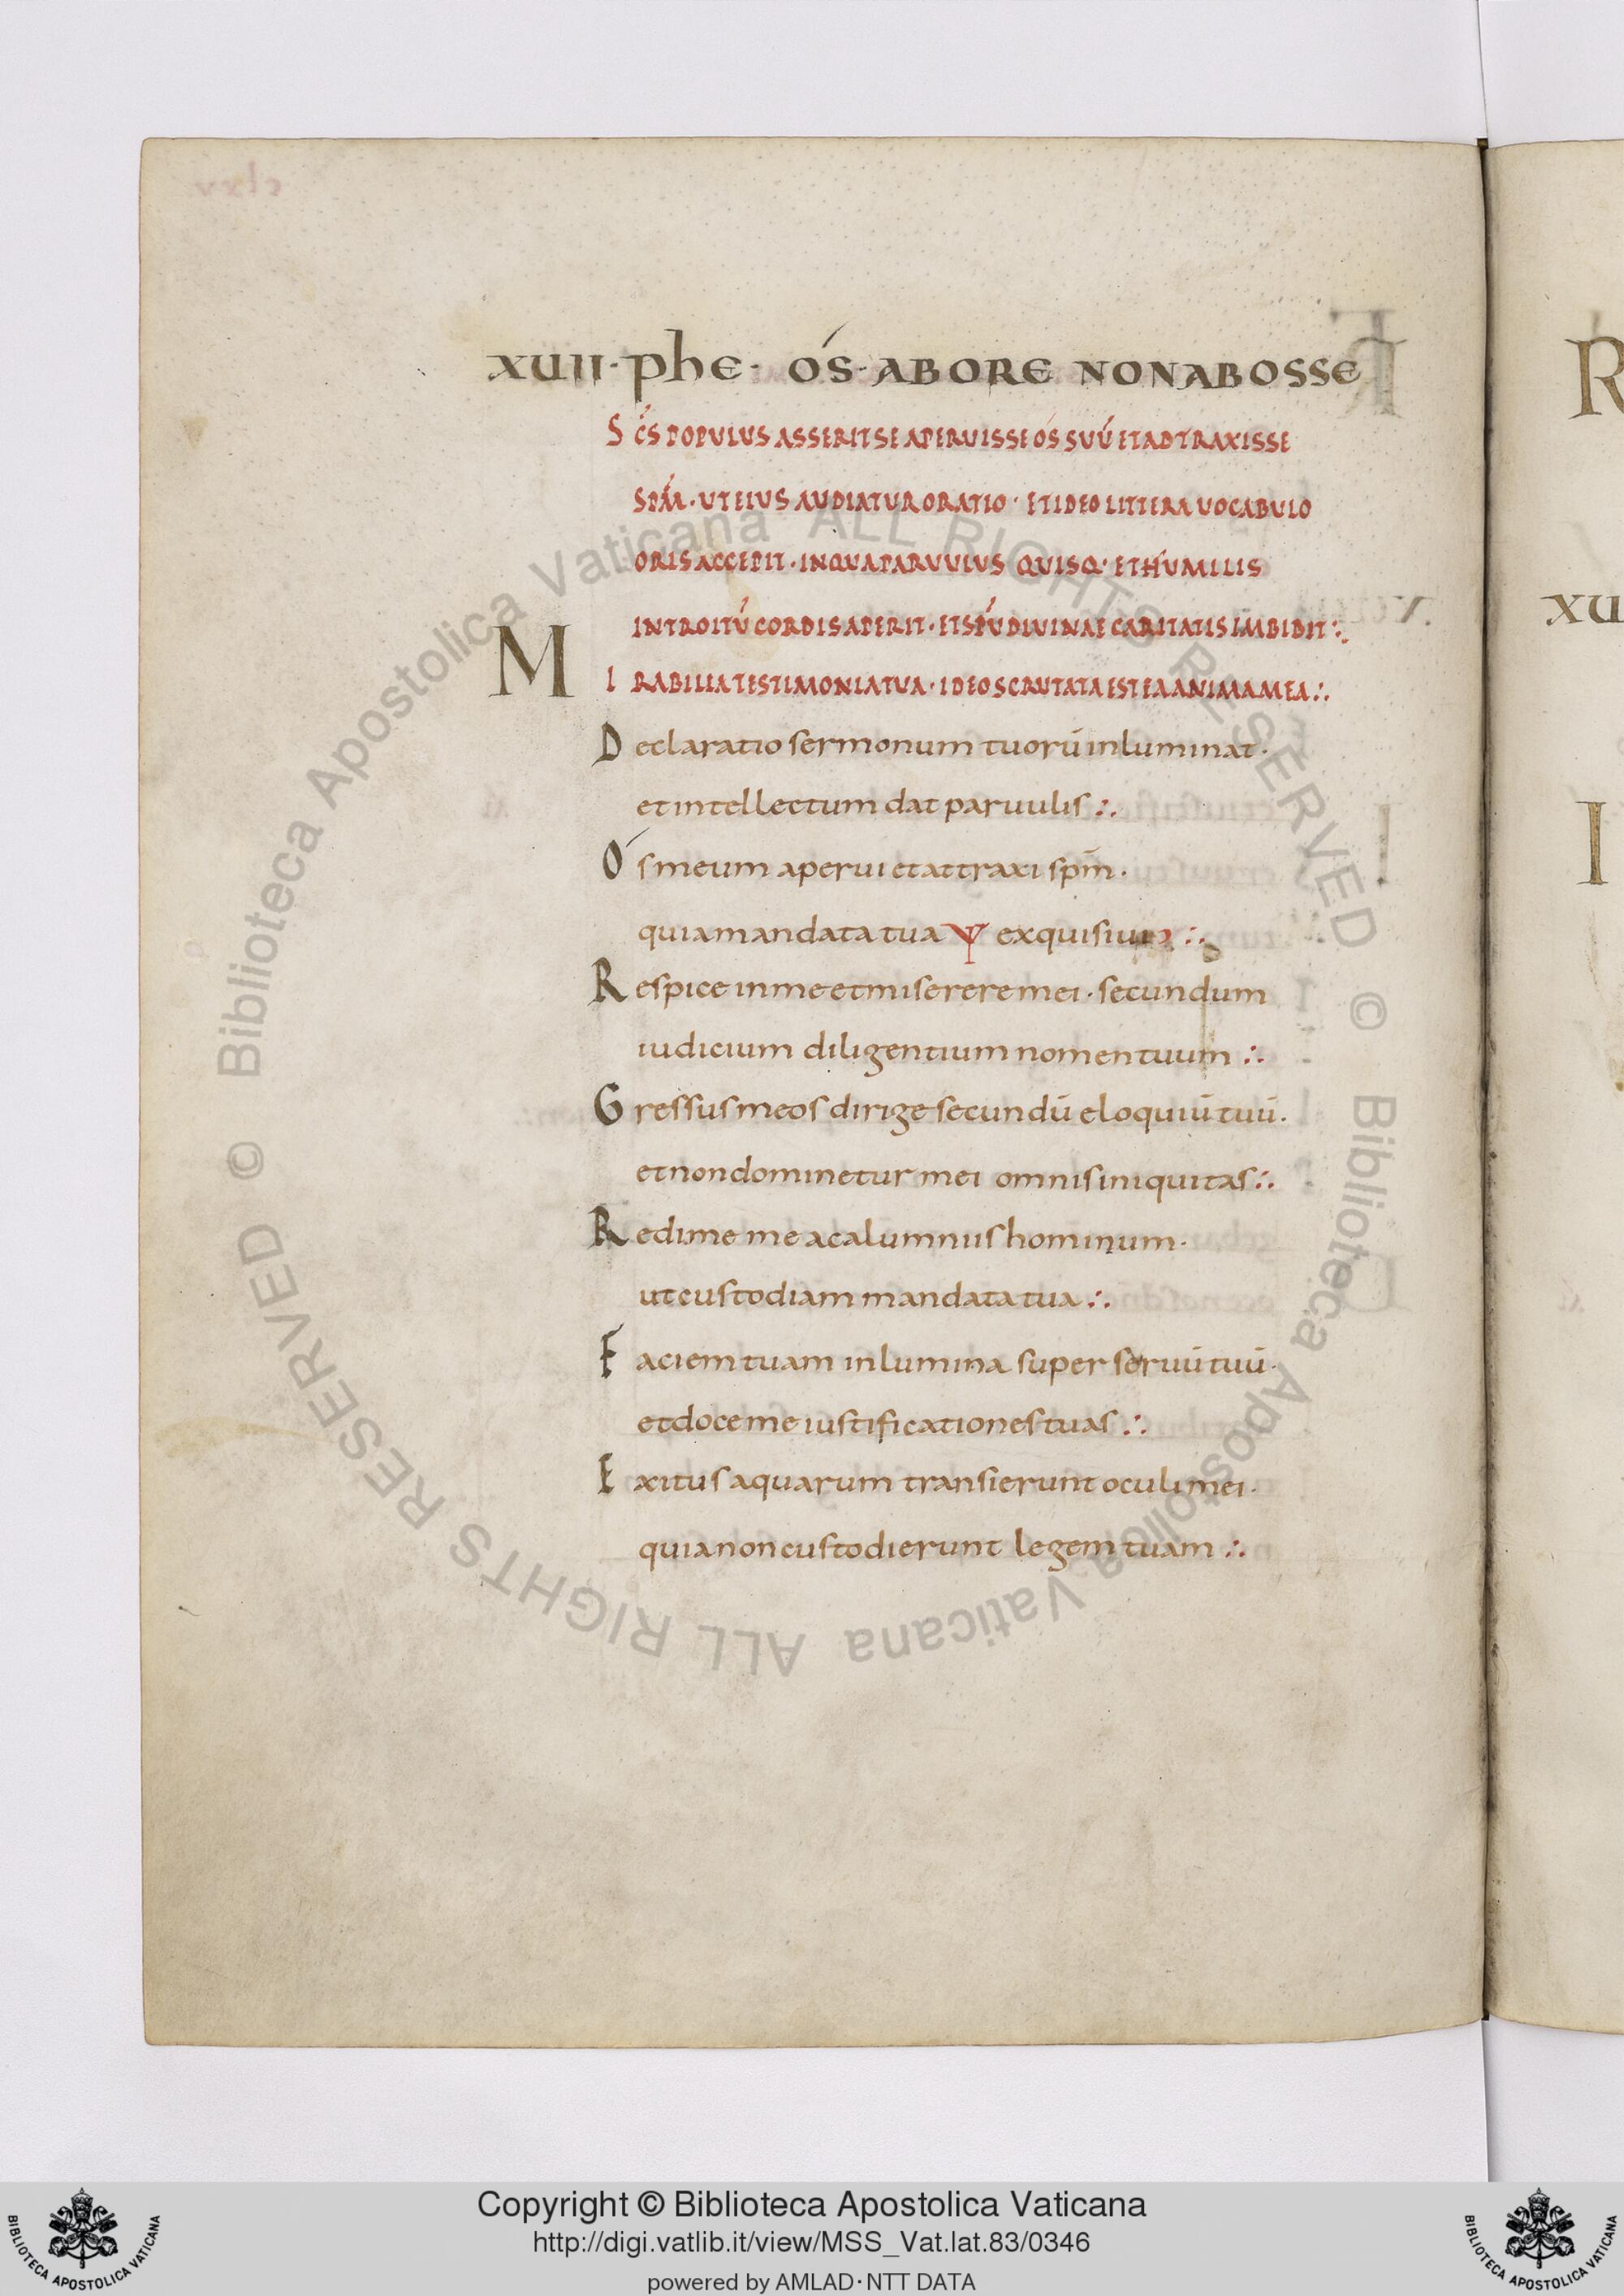 XUII · phe · ÓS · AB ORE NON AB OSSE
SC̄S POPULUS ASSERIT SE APERUISSE OS SUŪ ET ADTRAXISSE
SPM̄ · UT EIUS AUDIATUR ORATIO · ET IDEO LITTERA UOCABULO
ORIS ACCEPIT · IN QUA PARUULUS QUISQ· ET HUMILIS
INTROITŪ CORDIS APERIT · ET SPŪ DIUINAE CARITATIS IMBIBIT ∴
MIRABILIA TESTIMONIA TUA · IDEO SCRUTATA EST EA ANIMA MEA ∴
Declaratio sermonum tuorū inluminat ·
et intellectum dat paruulis ∴
Ós meum aperui et attraxi spm̄ ·
quia mandata tua exquisiui ∴
Respice in me et miserere mei · secundum
iudicium diligentium nomen tuum ∴
Gressus meos dirige secundū eloquiū tuū ·
et non dominetur mei omnis iniquitas ∴
Redime me a calumniis hominum ·
ut custodiam mandata tua ∴
Faciem tuam inlumina super seruū tuū ·
et doce me iustificationes tuas ∴
Exitus aquarum transierunt oculi mei ·
quia non custodierunt legem tuam ∴
R
XU
I
© Biblioteca Apostolica Vaticana ALL RIGHTS RESERVED © Biblioteca Apostolica Vaticana ALL RIGHTS RESERVED
Copyright © Biblioteca Apostolica Vaticana
http://digi.vatlib.it/view/MSS_Vat.lat.83/0346
powered by AMLAD·NTT DATA
BIBLIOTECA APOSTOLICA VATICANA
BIBLIOTECA APOSTOLICA VATICANA